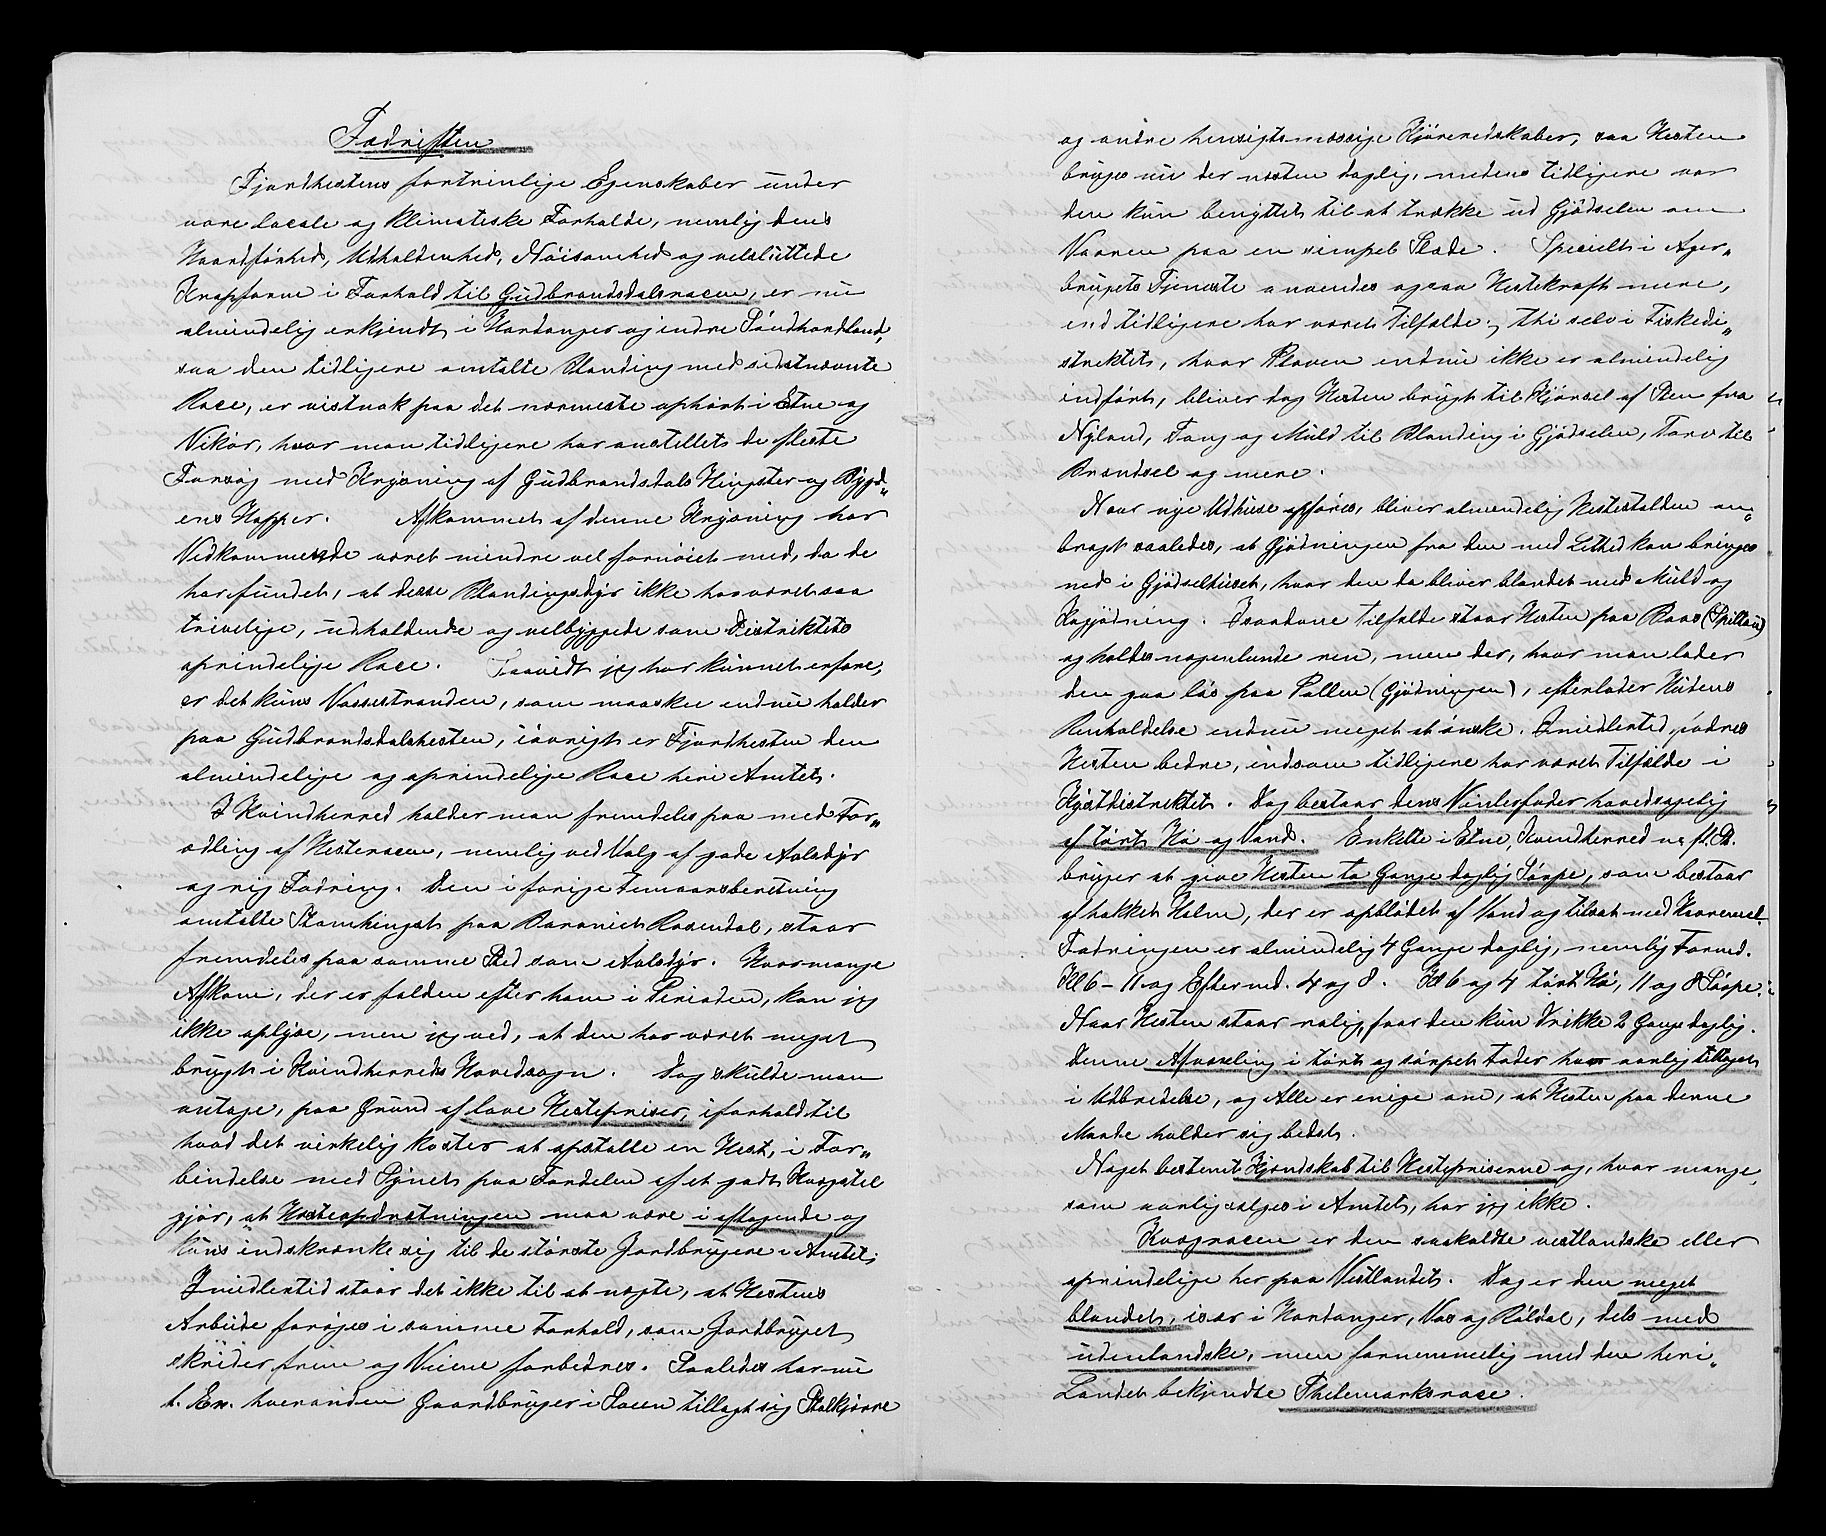 Fædriften
Fjordhestens fortrinlige Egenskaber under
vore Locale og klimatiske Forholde, nemlig dens
Haardførhed, Udholdenhed, Nøisomhed og velsluttede
Kropsform i Forhold til Gudbrandsdalsracen, er nu
almindelig erkjendt i Hardanger og indre Søndhordland,
saa den tidligere omtalte Blanding med sidstnævnte
Race, er vistnok paa det nærmeste ophørt i Etne og
Vikør, hvor man tidligere har anstillet de fleste
Forsøg med Krysning af Gudbrandsdals Hingster og Bygd„
ens Hopper. Afkommet af denne Krysning har
Vedkommende været mindre vel fornøiet med, da de
har fundet, at disse Blandingsdyr ikke har været saa
trivelige, udholdende og velbyggede som Distriktets
oprindelige Race. Saavidt jeg har kunnet erfare,
er det kuns Vossestranden, som maaskee endnu holder
paa Gudbrandsdalshesten, iøvrigt er Fjordhesten den
almindelige og oprindelige Race heri Amtet.
I Kvindherred holder man fremdeles paa med For„
ædling af Hesteracen, nemlig ved Valg af gode Avlsdyr
og rig Fodring. Den i forige Femaarsberetning
omtalte Stamhingst paa Baroniet Rosendal, staar
fremdeles paa samme Sted som Avlsdyr. Hvormange
Afkom, der er falden efter ham i Perioden, kan jeg
ikke oplyse, men jeg ved, at den har været meget
brugt i Kvindherreds Hovedsogn. Dog skulde man
antage, paa Grund af lave Hestepriser, i forhold til
hvad det virkelig koster at opstalle en Hest, i For„
bindelse med Synet paa Fordelen af et godt Kvægstel
gjør, at Hesteopdrætningen maa være i aftagende og
kuns indskrænke sig til de største Jordbrugere i Amtet.
Imidlertid staar det ikke til at nægte, at Hestens
Arbeide forøges i samme Forhold, som Jordbruget
skrider frem og Veiene forbedres. Saaledes har nu
t. Ex. hveranden Gaardbruger i Soen tillagt sig Stolkjærre
og andre hensigtsmæssige Kjøreredskaber, saa Hesten
bruges nu der næsten daglig, medens tidligere var
den kun benyttet til at trække ud Gjødselen om
Vaaren paa en simpel Slæde. Specielt i Ager„
brugets Tjeneste anvendes ogsaa Hestekraft mere,
end tidligere har været Tilfælde; thi selv i Fiskedi„
striktet, hvor Ploven endnu ikke er almindelig
indført, bliver dog Hesten brugt til Kjørsel af Sten fra
Nyland, Tang og Muld til Blanding i Gjødselen, Torv til
Brændsel og mere.
Naar nye Udhuse opføres, bliver almendelig Hestestalden an„
bragt saaledes, at Gjødningen fra den med Lethed kan bringes
ned i Gjødselhuset, hvor den da bliver blandet med Muld og
Kogjødning. I saadane Tilfælde staar Hesten paa Baas (Spiltau)
og holdes nogenlunde ren, men der, hvor man lader
den gaa løs paa Tallen (Gjødningen), efterlader Hudens
Renholdelse endnu meget at ønske. Imidlertid fødres
Hesten bedre, endsom tidligere har været Tilfælde i
Kystdistriktet. Dog bestaar dens Vinterfoder hovedsagelig
af tørt Hø og Vand. Enkelte i Etne, Kvindherred og fl. St.
bruger at give Hesten to Gange daglig Sørpe, som bestaar
af hakket Halm, der er opblødet af Vand og tilsat med Havremel.
Fodringen er almindelig 4 Gange daglig, nemlig Formd.
Kl 6 – 11 og Eftermd. 4 og 8. Kl 6 og 4 tørt Hø, 11 og 8 Sørpe.
Naar Hesten staar rolig, faar den kun Drikke 2 Gange daglig.
Denne Afvexling i tørt og sørpet Foder har aarlig tiltaget
i Udbredelse, og Alle er enige om, at Hesten paa denne
Maade holder sig bedst.
Noget bestemt Kjendskab til Hestepriserne og, hvor mange,
som aarlig sælges i Amtet, har jeg ikke.
Kvægracen er den saakaldte vestlandske eller
oprindelige her paa Vestlandet. Dog er den meget
blandet, især i Hardanger, Vos og Røldal, dels med
udenlandske, men fornemmelig med den heri„
Landet bekjendte Thelemarksrace.